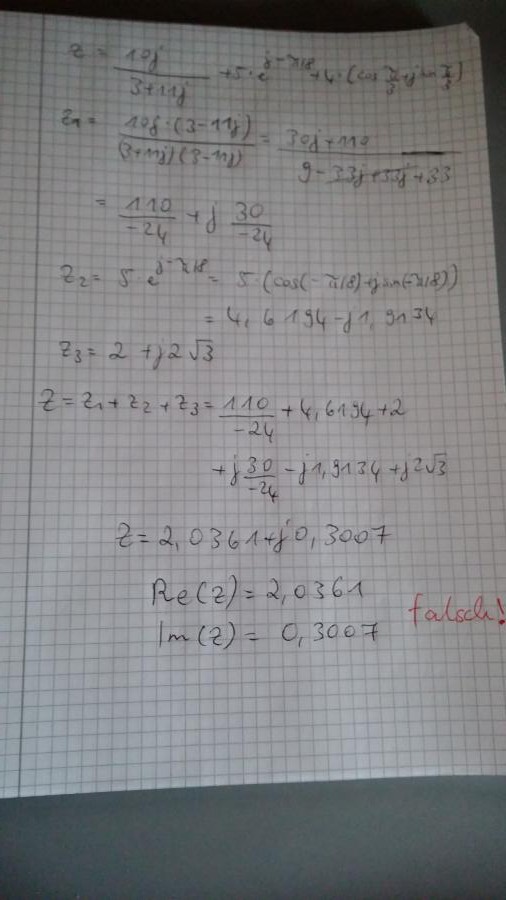 z = 10j / 3+11j + 5·e^(j-π/8) + 4·(cos π/3 + j sin π/3)
z1 = 10j·(3-11j) / (3+11j)(3-11j) = 30j+110 / 9-33j+33j+33
= 110/-24 + j 30/-24
z2 = 5·e^(j-π/8) = 5·(cos(-π/8)+j sin(-π/8))
= 4,6194-j1,9134
z3 = 2 + j2√3
z = z1 + z2 + z3 = 110/-24 + 4,6194+2
+j 30/-24 - j1,9134 + j2√3
z = 2,0361+j0,3007
Re(z) = 2,0361
Im(z) = 0,3007
falsch!